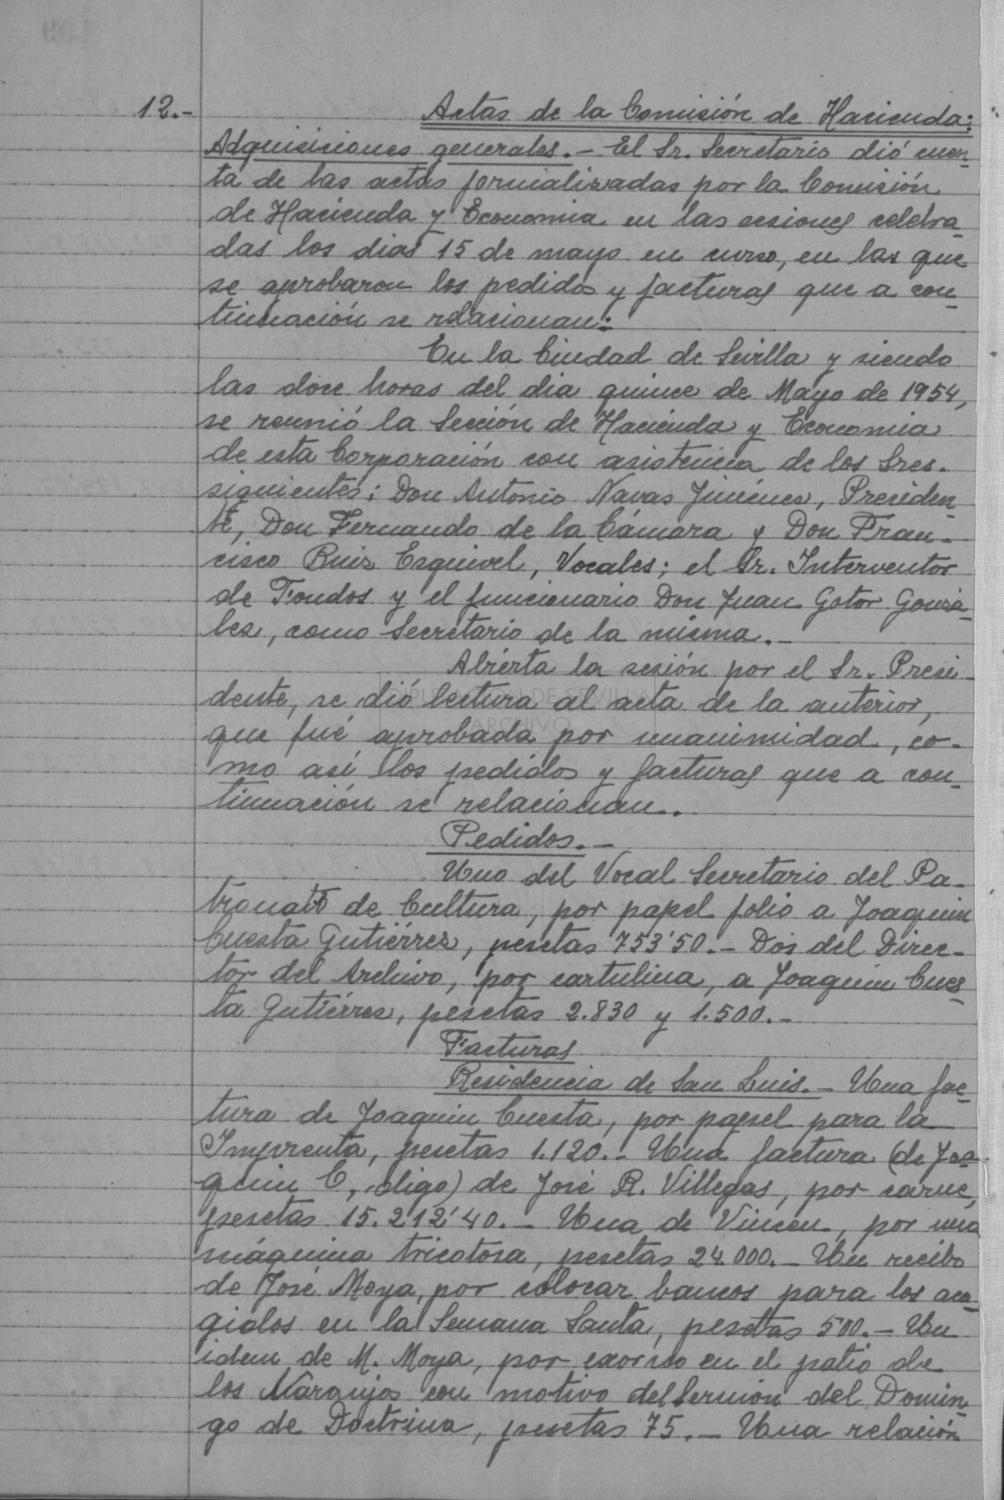 12.- Actas de la Comisión de Hacienda:
Adquisiciones generales.- El Sr. Secretario dió cuen-
ta de las actas formalizadas por la Comisión
de Hacienda y Economia en las sesiones celebra-
das los dias 15 de mayo en curso, en las que
se aprobaron los pedidos y facturas que a con-
tinuación se relacionan:
En la Ciudad de Sevilla y siendo
las doce horas del dia quince de Mayo de 1954,
se reunió la Sección de Hacienda y Economia
de esta Corporación con asistencia de los Sres.
siguientes: Don Antonio Navas Jiménez, Presiden-
te, Don Fernando de la Cámara y Don Fran-
cisco Ruiz Esquivel, Vocales; el Sr. Interventor
de Fondos y el funcionario Don Juan Gotor Gonzá-
lez, como Secretario de la misma.-
Abierta la sesión por el Sr. Presi-
dente, se dió lectura al acta de la anterior,
que fué aprobada por unanimidad, co-
mo así los pedidos y facturas que a con-
tinuación se relacionan.
Pedidos.-
Uno del Vocal Secretario del Pa-
tronato de Cultura, por papel folio a Joaquin
Cuesta Gutiérrez, pesetas 753'50.- Dos del Direc-
tor del Archivo, por cartulina, a Joaquin Cues-
ta Gutiérrez, pesetas 2.830 y 1.500.-
Facturas
Residencia de San Luis.- Una fac-
tura de Joaquin Cuesta, por papel para la
Imprenta, pesetas 1.120.- Una factura (de Joa-
quin C, digo) de José R. Villegas, por carne,
pesetas 15.212'40.- Una de Vincen, por una
máquina tricotosa, pesetas 24.000.- Un recibo
de José Moya, por colocar bancos para los aco-
gidos en la Semana Santa, pesetas 500.- Un
idem de M. Moya, por exorno en el patio de
los Naranjos con motivo del Sermón del Domin-
go de Doctrina, pesetas 75.- Una relación
DIPUTACIÓN DE SEVILLA
ARCHIVO